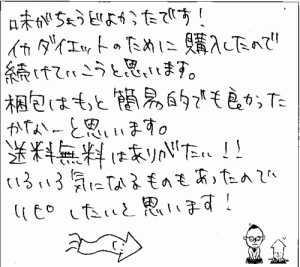 味がちょうどよかったです!
イカダイエットのために購入したので
続けていこうと思います。
梱包はもっと簡易的でも良かった
かなーと思います。
送料無料はありがたい!!
いろいろ気になるものもあったので
リピしたいと思います!